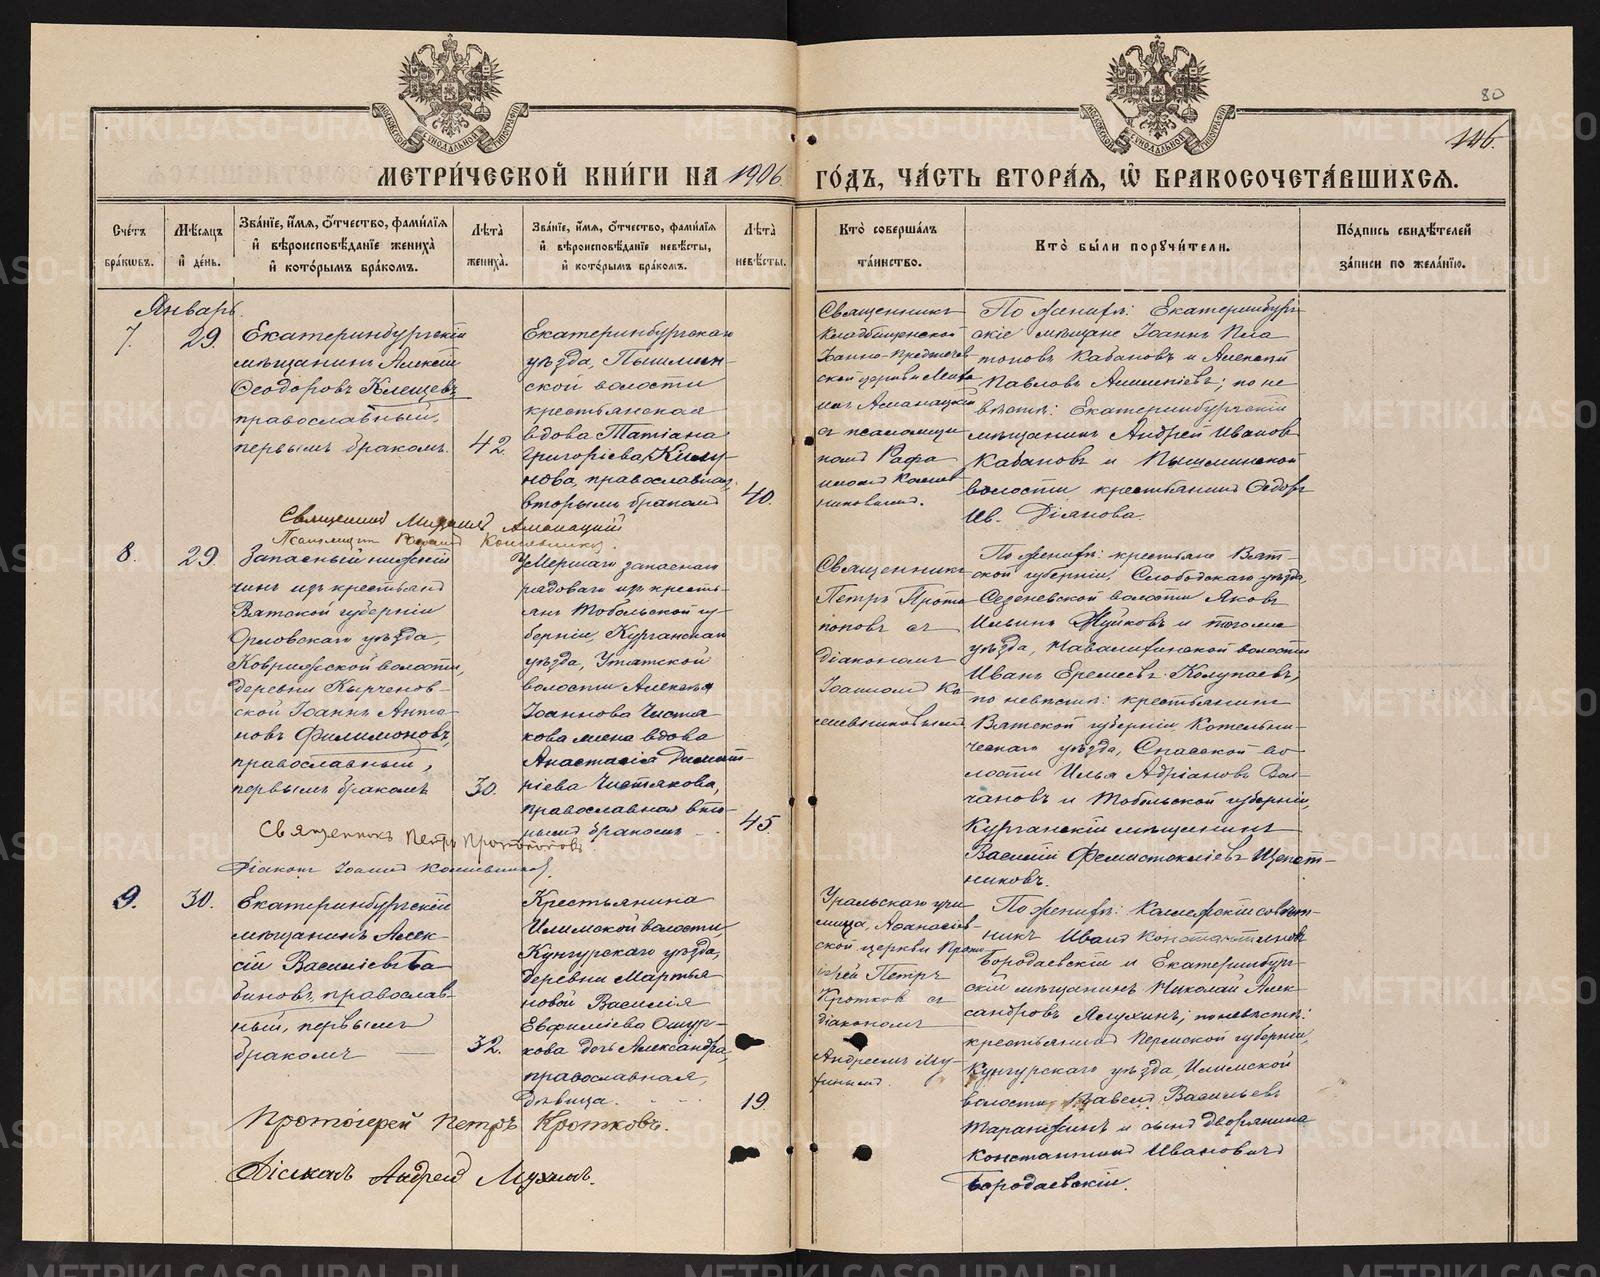 80
146.
МЕТРИ́ЧЕСКОЙ КНИ́ГИ НА 1906
ГО́ДЪ, ЧА́СТЬ ВТОРА́Я, Ѡ҆ БРАКОСОЧЕТА́ВШИХСЯ.
Сче́тъ бра́кѡвъ.
Мѣ́сяцъ и҆ де́нь.
Зва́нїе, и҆́мя, ѻ҆́тчество, фами́лїя
и҆ вѣроисповѣ́данїе жениха̀
и҆ кото́рымъ бра́комъ.
Лѣ́та̀ жениха̀.
Зва́нїе, и҆́мя, ѻ҆́тчество, фами́лїя
и҆ вѣроисповѣ́данїе невѣ́сты,
и҆ кото́рымъ бра́комъ.
Лѣ́та̀ невѣ́сты.
Кто̀ соверша́лъ
та́инство.
Кто̀ бы́ли порꙋчи́тели.
По́дпись свидѣ́телей
за́писи по жела́нїю.
Январь.
7.
29.
Екатеринбургскій
мѣщанинъ Алексій
Ѳеодоровъ Клещевъ
православный,
первымъ бракомъ.
42.
Екатеринбургскаго
уѣзда, Пышмин-
ской волости
крестьянская
вдова Татіана
Григоріева
нова, православная,
вторымъ бракомъ
40.
Священникъ
Кладбищенской
Іоанно-Предтечев
ской церкви Миха
илъ Аманацкій
съ псаломщи
комъ Рафа
иломъ Кошев
никовымъ.
По женихѣ: Екатеринбург
скіе мѣщане Іоаннъ Пла
тоновъ Кабановъ и Алексѣй
Павловъ по не
вѣстѣ: Екатеринбургскій
мѣщанинъ Андрей Иванов
Кабановъ и Пышминской
волости крестьянинъ Ѳедоръ
Ив. Діянова.
Священникъ Михаилъ Аманацкій
Псаломщик
8.
29.
Запасный нижній
чинъ изъ крестьянъ
Вятской губерніи
Орловскаго уѣзда
Коврижской волости,
деревни Кырченов-
ской Іоаннъ Анто
новъ Филимоновъ,
православный,
первымъ бракомъ
30.
Умершаго запаснаго
рядоваго изъ кресть-
янъ Тобольской гу-
берніи, Курганскаго
уѣзда, Утятской
волости Алексѣя
Іоаннова Чистя
кова жена вдова
Анастасія Димит-
ріева Чистякова,
православная вто-
рымъ бракомъ
45.
Священникъ
Петръ Прото
поповъ съ
діакономъ
Іоанномъ Ко
шевниковымъ
По женихѣ: крестьяне Вят-
ской губерніи, Слободскаго уѣзда,
Сезеневской волости Яковъ
Ильинъ Жуйковъ и того же
уѣзда, волости
Иванъ Еремеевъ Колупаевъ,
по невѣстѣ: крестьянинъ
Вятской губерніи, Котельни-
ческаго уѣзда, Спасской во
лости Илья Адріановъ Вол-
чановъ и Тобольской губерніи,
Курганскій мѣщанинъ
Василій Ѳемистокліевъ Щепет-
никовъ.
Священникъ Петръ Протопоповъ
Діаконъ Іоаннъ Кошевниковъ.
9.
30.
Екатеринбургскій
мѣщанинъ Алек-
сій Василіевъ Ба-
биновъ, православ-
ный, первымъ
бракомъ
32.
Крестьянина
Илимской волости,
Кунгурскаго уѣзда,
деревни Мартья
новой Василія
Евфиміева Ошур-
кова дочь Александра,
православная,
дѣвица.
19.
Уральскаго учи
лища, Аѳанасіев-
ской церкви Прото
іерей Петръ
Кротковъ съ
діакономъ
Андреемъ Му
хинымъ.
По женихѣ: Коллежскій совѣт-
никъ Иванъ Константинов
Бородаевскій и Екатеринбург-
скій мѣщанинъ Николай Алек-
сандровъ Ялухинъ; по невѣстѣ:
крестьянинъ Пермской губерніи,
Кунгурскаго уѣзда, Илимской
волости Павелъ Васильевъ
Таранжинъ и сынъ дворянина
Константинъ Ивановичъ
Бородаевскій.
Протоіерей Петръ Кротковъ.
Діаконъ Андрей Мухинъ.
METRIKI.GASO-URAL.RU